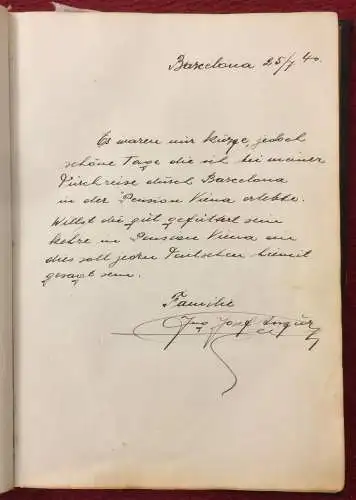 Barcelona 25/7 40.
Es waren nur kurze, jedoch
schöne Tage die ich bei meiner
Durchreise durch Barcelona
in der Pension Viena erlebte.
Willst du gut gefüttert sein
kehre in Pension Viena ein
dies soll jedem Deutschen hiemit
gesagt sein.
Familie
Josef